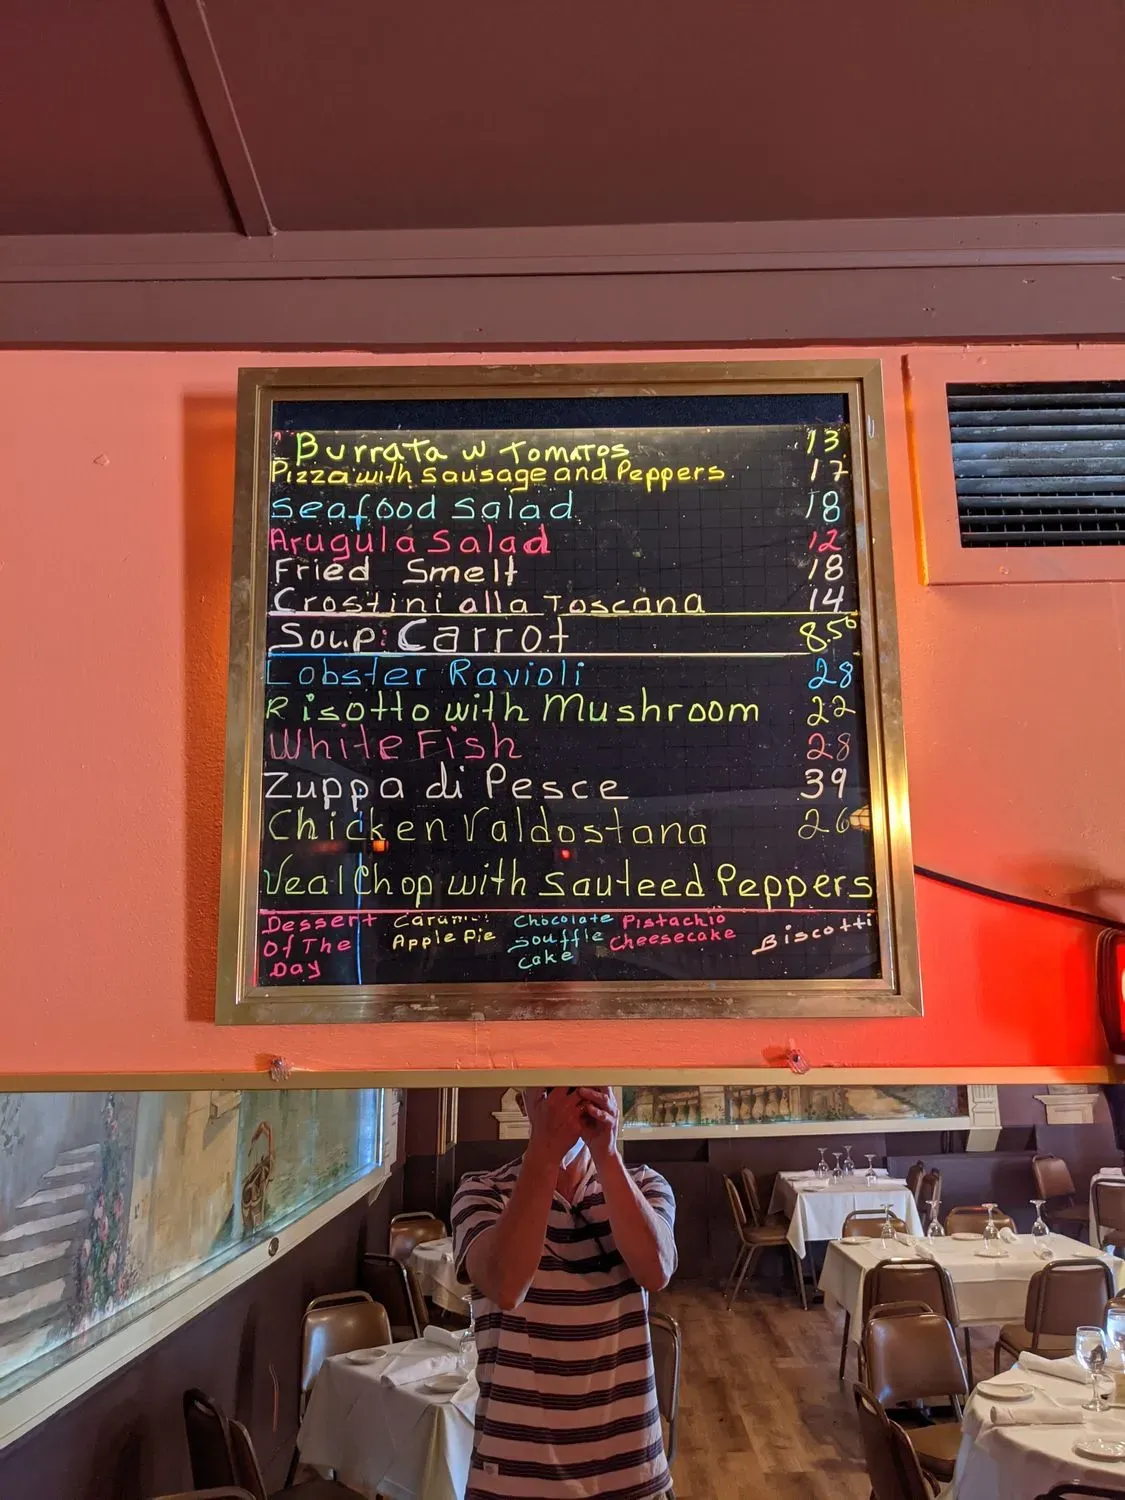 Burrata w Tomatos 13
Pizza with Sausage and Peppers 17
Seafood Salad 18
Arugula Salad 12
Fried Smelt 18
Crostini alla Toscana 14
Soup: Carrot 8.50
Lobster Ravioli 28
Risotto with Mushroom 22
White Fish 28
Zuppa di Pesce 39
Chicken Valdostana 26
Veal Chop with Sauteed Peppers
Dessert
Of The
Day
Apple Pie
Chocolate
Souffle
Cake
Pistachio
Cheesecake
Biscotti